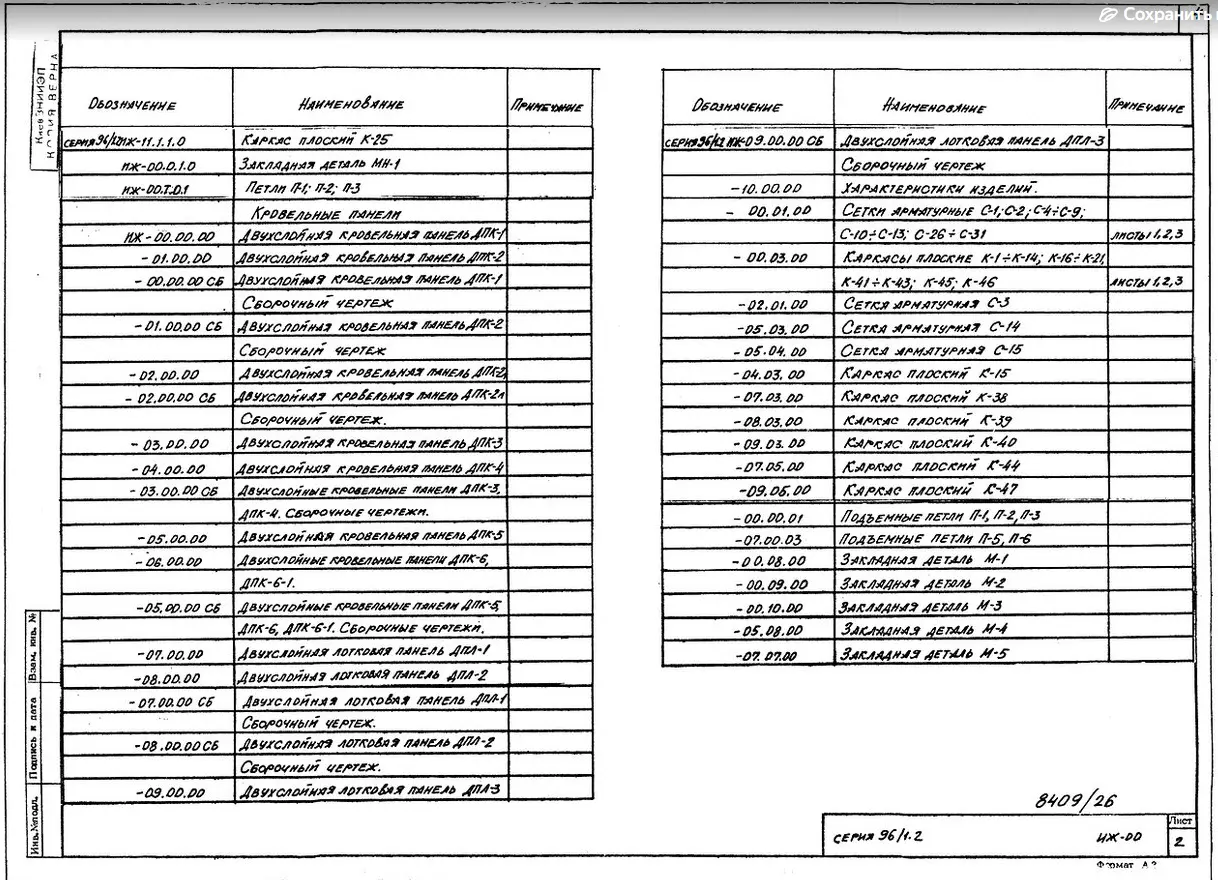 Сохранить
КиевЗНИИЭП
КОПИЯ ВЕРНА
Обозначение Наименование Примечание
Серия 96/1.2 ИЖ-11.1.1.0 Каркас плоский К-25
ИЖ-00.0.1.0 Закладная деталь МН-1
ИЖ-00.Т.0.1 Петли П-1; П-2; П-3
Кровельные панели
ИЖ-00.00.00 Двухслойная кровельная панель ДПК-1
-01.00.00 Двухслойная кровельная панель ДПК-2
-00.00.00 СБ Двухслойная кровельная панель ДПК-1
Сборочный чертеж
-01.00.00 СБ Двухслойная кровельная панель ДПК-2
Сборочный чертеж
-02.00.00 Двухслойная кровельная панель
-02.00.00 СБ Двухслойная кровельная панель ДПК-2л
Сборочный чертеж.
-03.00.00 Двухслойная кровельная панель ДПК-3
-04.00.00 Двухслойная кровельная панель ДПК-4
-03.00.00 СБ Двухслойные кровельные панели ДПК-3,
ДПК-4. Сборочные чертежи.
-05.00.00 Двухслойная кровельная панель ДПК-5
-06.00.00 Двухслойные кровельные панели ДПК-6,
ДПК-6-1.
-05.00.00 СБ Двухслойные кровельные панели ДПК-5,
ДПК-6, ДПК-6-1. Сборочные чертежи.
-07.00.00 Двухслойная лотковая панель ДПЛ-1
-08.00.00 Двухслойная лотковая панель ДПЛ-2
-07.00.00 СБ Двухслойная лотковая панель ДПЛ-1
Сборочный чертеж.
-08.00.00 СБ Двухслойная лотковая панель ДПЛ-2
Сборочный чертеж.
-09.00.00 Двухслойная лотковая панель ДПЛ-3
Обозначение Наименование Примечание
Серия 96/1.2 ИЖ-09.00.00 СБ Двухслойная лотковая панель ДПЛ-3
Сборочный чертеж
-10.00.00 Характеристики изделий.
- 00.01.00 Сетки арматурные С-1; С-2; С-4÷С-9;
С-10÷С-13; С-26÷С-31 листы 1,2,3
-00.03.00 Каркасы плоские К-1÷К-14; К-16÷К-21,
К-41÷К-43; К-45; К-46 листы 1,2,3
-02.01.00 Сетка арматурная С-3
-05.03.00 Сетка арматурная С-14
-05.04.00 Сетка арматурная С-15
-04.03.00 Каркас плоский К-15
-07.03.00 Каркас плоский К-38
-08.03.00 Каркас плоский К-39
-09.03.00 Каркас плоский К-40
-07.05.00 Каркас плоский К-44
-09.06.00 Каркас плоский К-47
-00.00.01 Подъемные петли П-1, П-2, П-3
-07.00.03 Подъемные петли П-5, П-6
-00.08.00 Закладная деталь М-1
-00.09.00 Закладная деталь М-2
-00.10.00 Закладная деталь М-3
-05.08.00 Закладная деталь М-4
-07.07.00 Закладная деталь М-5
Взам. инв. №
Подпись и дата
Инв.№подл.
8409/26
Серия 96/1.2 ИЖ-00
Лист
2
Формат А2